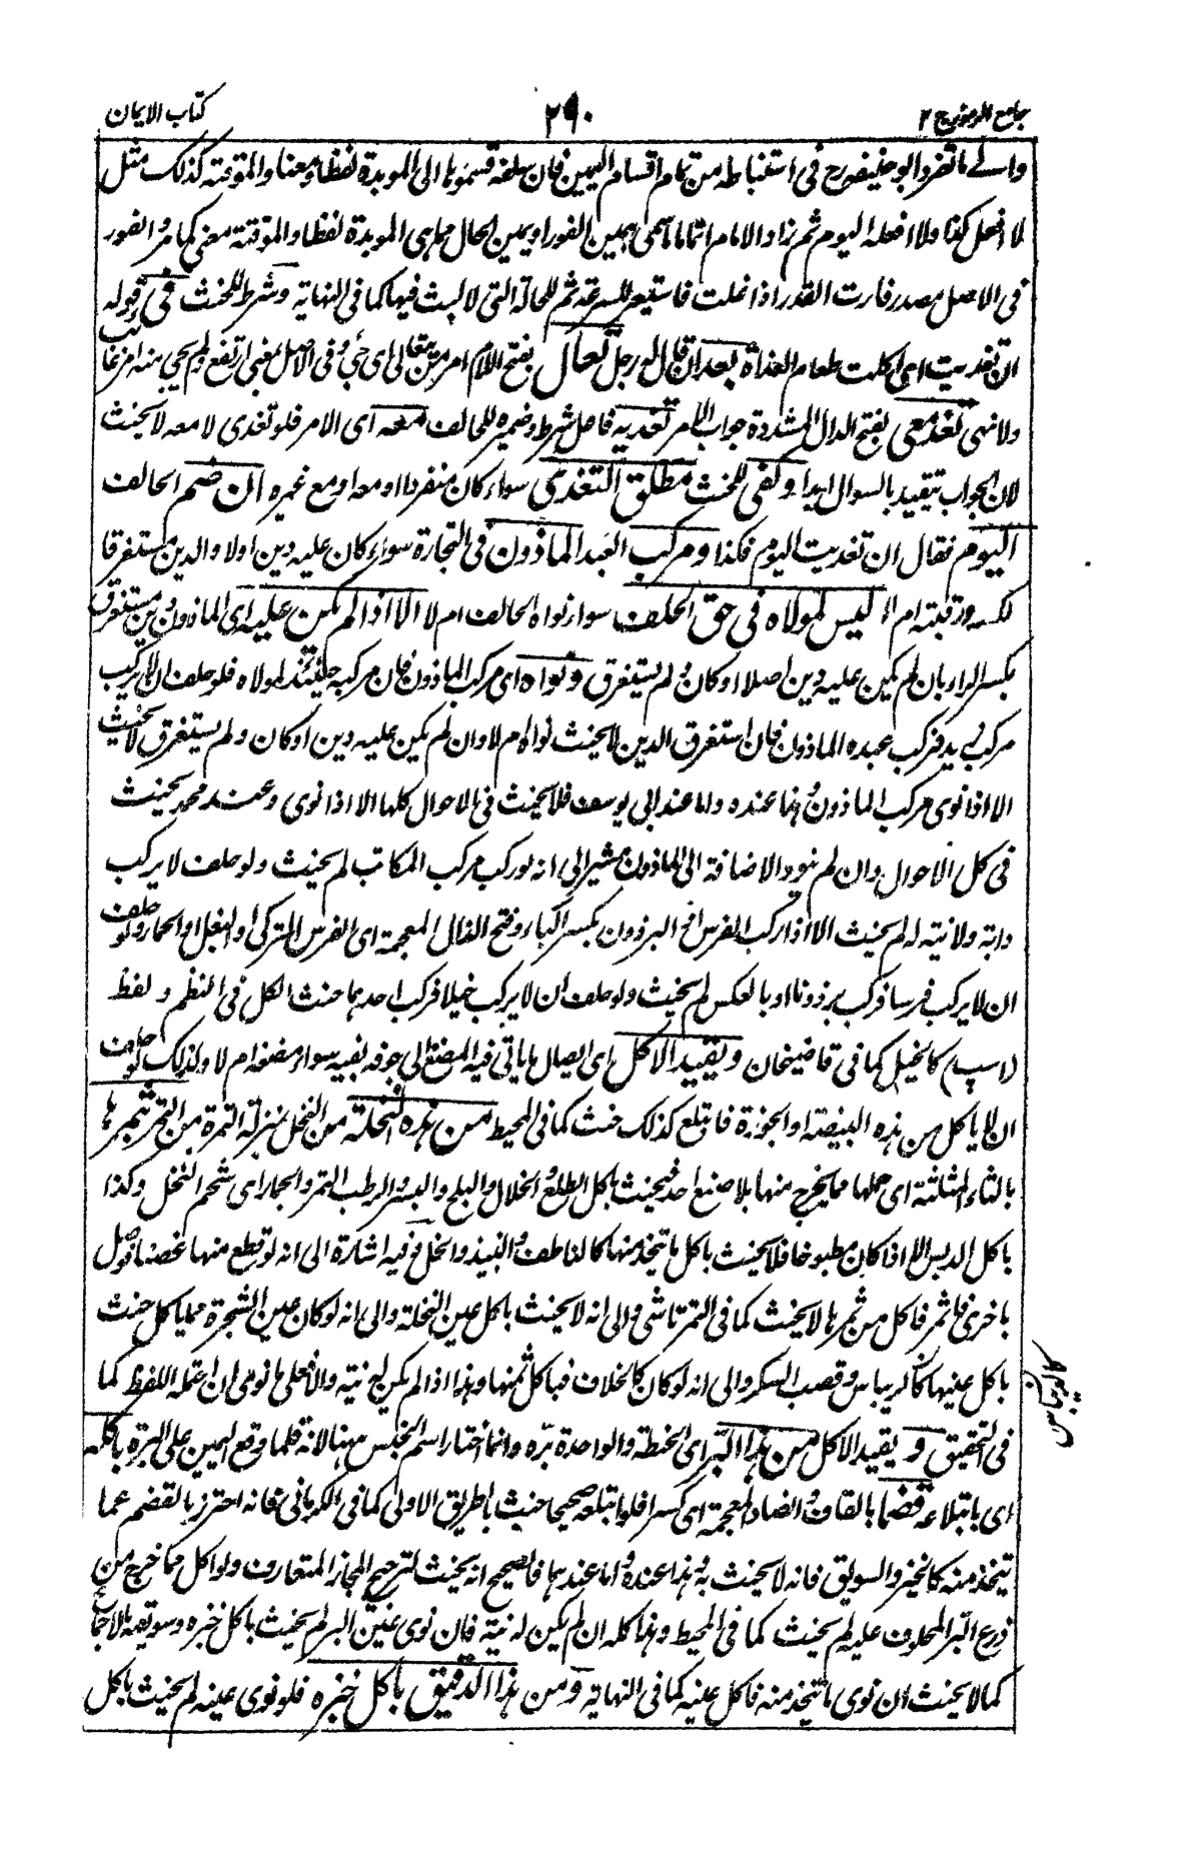 جامع الرموز ج ٢
٢٩٠
كتاب الايمان
والى ما تفرد ابو حنيفة رح فى استنباطه من تمام اقسام اليمين فان سلفه قسموها الى المؤبدة لفظا ومعنا والموقتة كذلك مثل
لا افعل كذا ولا افعله اليوم ثم زاد الامام اتماما ما سمى يمين الفور او يمين الحال ما هى المؤبدة لفظا والموقتة معنى كما مر والفور
فى الاصل مصدر فارت القدر اذا غلت فاستعير للسرعة ثم للحالة التى لا لبث فيها كما فى النهاية وشرط للحنث فى قوله
ان تغديت اى اكلت طعام الغداة بعد ان قال له رجل تعال بفتح اللام امر من تعالى اى جئ وفى الاصل بمعنى ارتفع ولم يجئ منه امر غائب
ولا نهى تغد معى بفتح الدال المشددة جواب الامر تغديه فاعل شرط وضميره للحالف معه اى الامر فلو تغدى لا معه لا يحنث
لان الجواب يتقيد بالسوال ابدا وكفى للحنث مطلق التغدى سواء كان منفردا او معه او مع غيره ان ضم الحالف
اليوم فقال ان تغديت اليوم فكذا ومركب العبد الماذون فى التجارة سواء كان عليه دين اولا والدين مستغرقا
لكسبه ورقبته ام لا ليس لمولاه فى حق الحلف سواء نواه الحالف ام لا الا اذا لم يكن عليه اى الماذون دين مستغرق
بكسر الراء بان لم يكن عليه دين اصلا او كان ولم يستغرق ونواه اى مركب الماذون فان مركبه حينئذ لمولاه فلو حلف ان لا يركب
مركب زيد فركب عبده الماذون فان استغرق الدين لا يحنث نواه ام لا وان لم يكن عليه دين او كان ولم يستغرق لا يحنث
الا اذا نوى مركب الماذون وهذا عنده واما عند ابى يوسف فلا يحنث فى الاحوال كلها الا اذا نوى وعند محمد يحنث
فى كل الاحوال وان لم ينو والاضافة الى الماذون مشير الى انه لو ركب مركب المكاتب لم يحنث ولو حلف لا يركب
دابة ولا نية له لم يحنث الا اذا ركب الفرس او البرذون بكسر الباء وفتح الذال المعجمة اى الفرس التركى او البغل او الحمار ولو حلف
ان لا يركب فرسا فركب برذونا او بالعكس لم يحنث ولو حلف ان لا يركب خيلا فركب احدهما حنث الكل فى النظم ولفظ
(اسپ) كالخيل كما فى قاضيخان وتقييد الاكل اى ايصال ما ياتى فيه المضغ الى جوفه بفيه سواء مضغه ام لا ولذلك لو حلف
ان لا ياكل من هذه البيضة او الجوزة فابتلع كذلك حنث كما فى المحيط من هذه النخلة من النخل بمنزلة التمرة من التمر بثمرها
بالثاء المثلثة اى حملها مما يخرج منها بلا صنع احد فيحنث باكل الطلع والخلال والبلح والبسر والرطب والتمر والجمار اى شحم النخل وكذا
باكل الدبس الا اذا كان مطبوخا فلا يحنث باكل ما يتخذ منها كالناطف والنبيذ والخل وفيه اشارة الى انه لو قطع منها غصنا فوصل
باخرى فاثمر فاكل من ثمرها لا يحنث كما فى التمرتاشى والى انه لا يحنث باكل عين النخلة والى انه لو كان عين الشجرة مما ياكل حنث
باكل عينها كالريباس وقصب السكر والى انه لو كان كالخلاف فباكل ثمنها وهذا اذا لم يكن له نية والا فعلى ما نوى ان احتمله اللفظ كما
كالريباس
فى التحقيق ويقيد الاكل من هذا البر اى الحنطة والواحدة برة وانما اختار اسم الجنس ههنا لانه قلما وقع اليمين على البرة باكله
اى بابتلاعه قضما بالقاف والضاد المعجمة اى كسرا فلو ابتلعه صحيحا حنث بالطريق الاولى كما فى الكرمانى فانه احترز بالقضم عما
يتخذ منه كالخبز والسويق فانه لا يحنث به وهذا عنده واما عندهما فالصحيح انه يحنث لترجيح المجاز المتعارف ولو اكل مما خرج من
زرع البر المحلوف عليه لم يحنث كما فى المحيط وهذا كله ان لم يكن له نية فان نوى عين البر لم يحنث باكل خبزه وسويقه بلاجماع
كما لا يحنث ان نوى ما يتخذ منه فاكل عينه كما فى النهاية ومن هذا الدقيق باكل خبزه فلو نوى عينه لم يحنث باكل